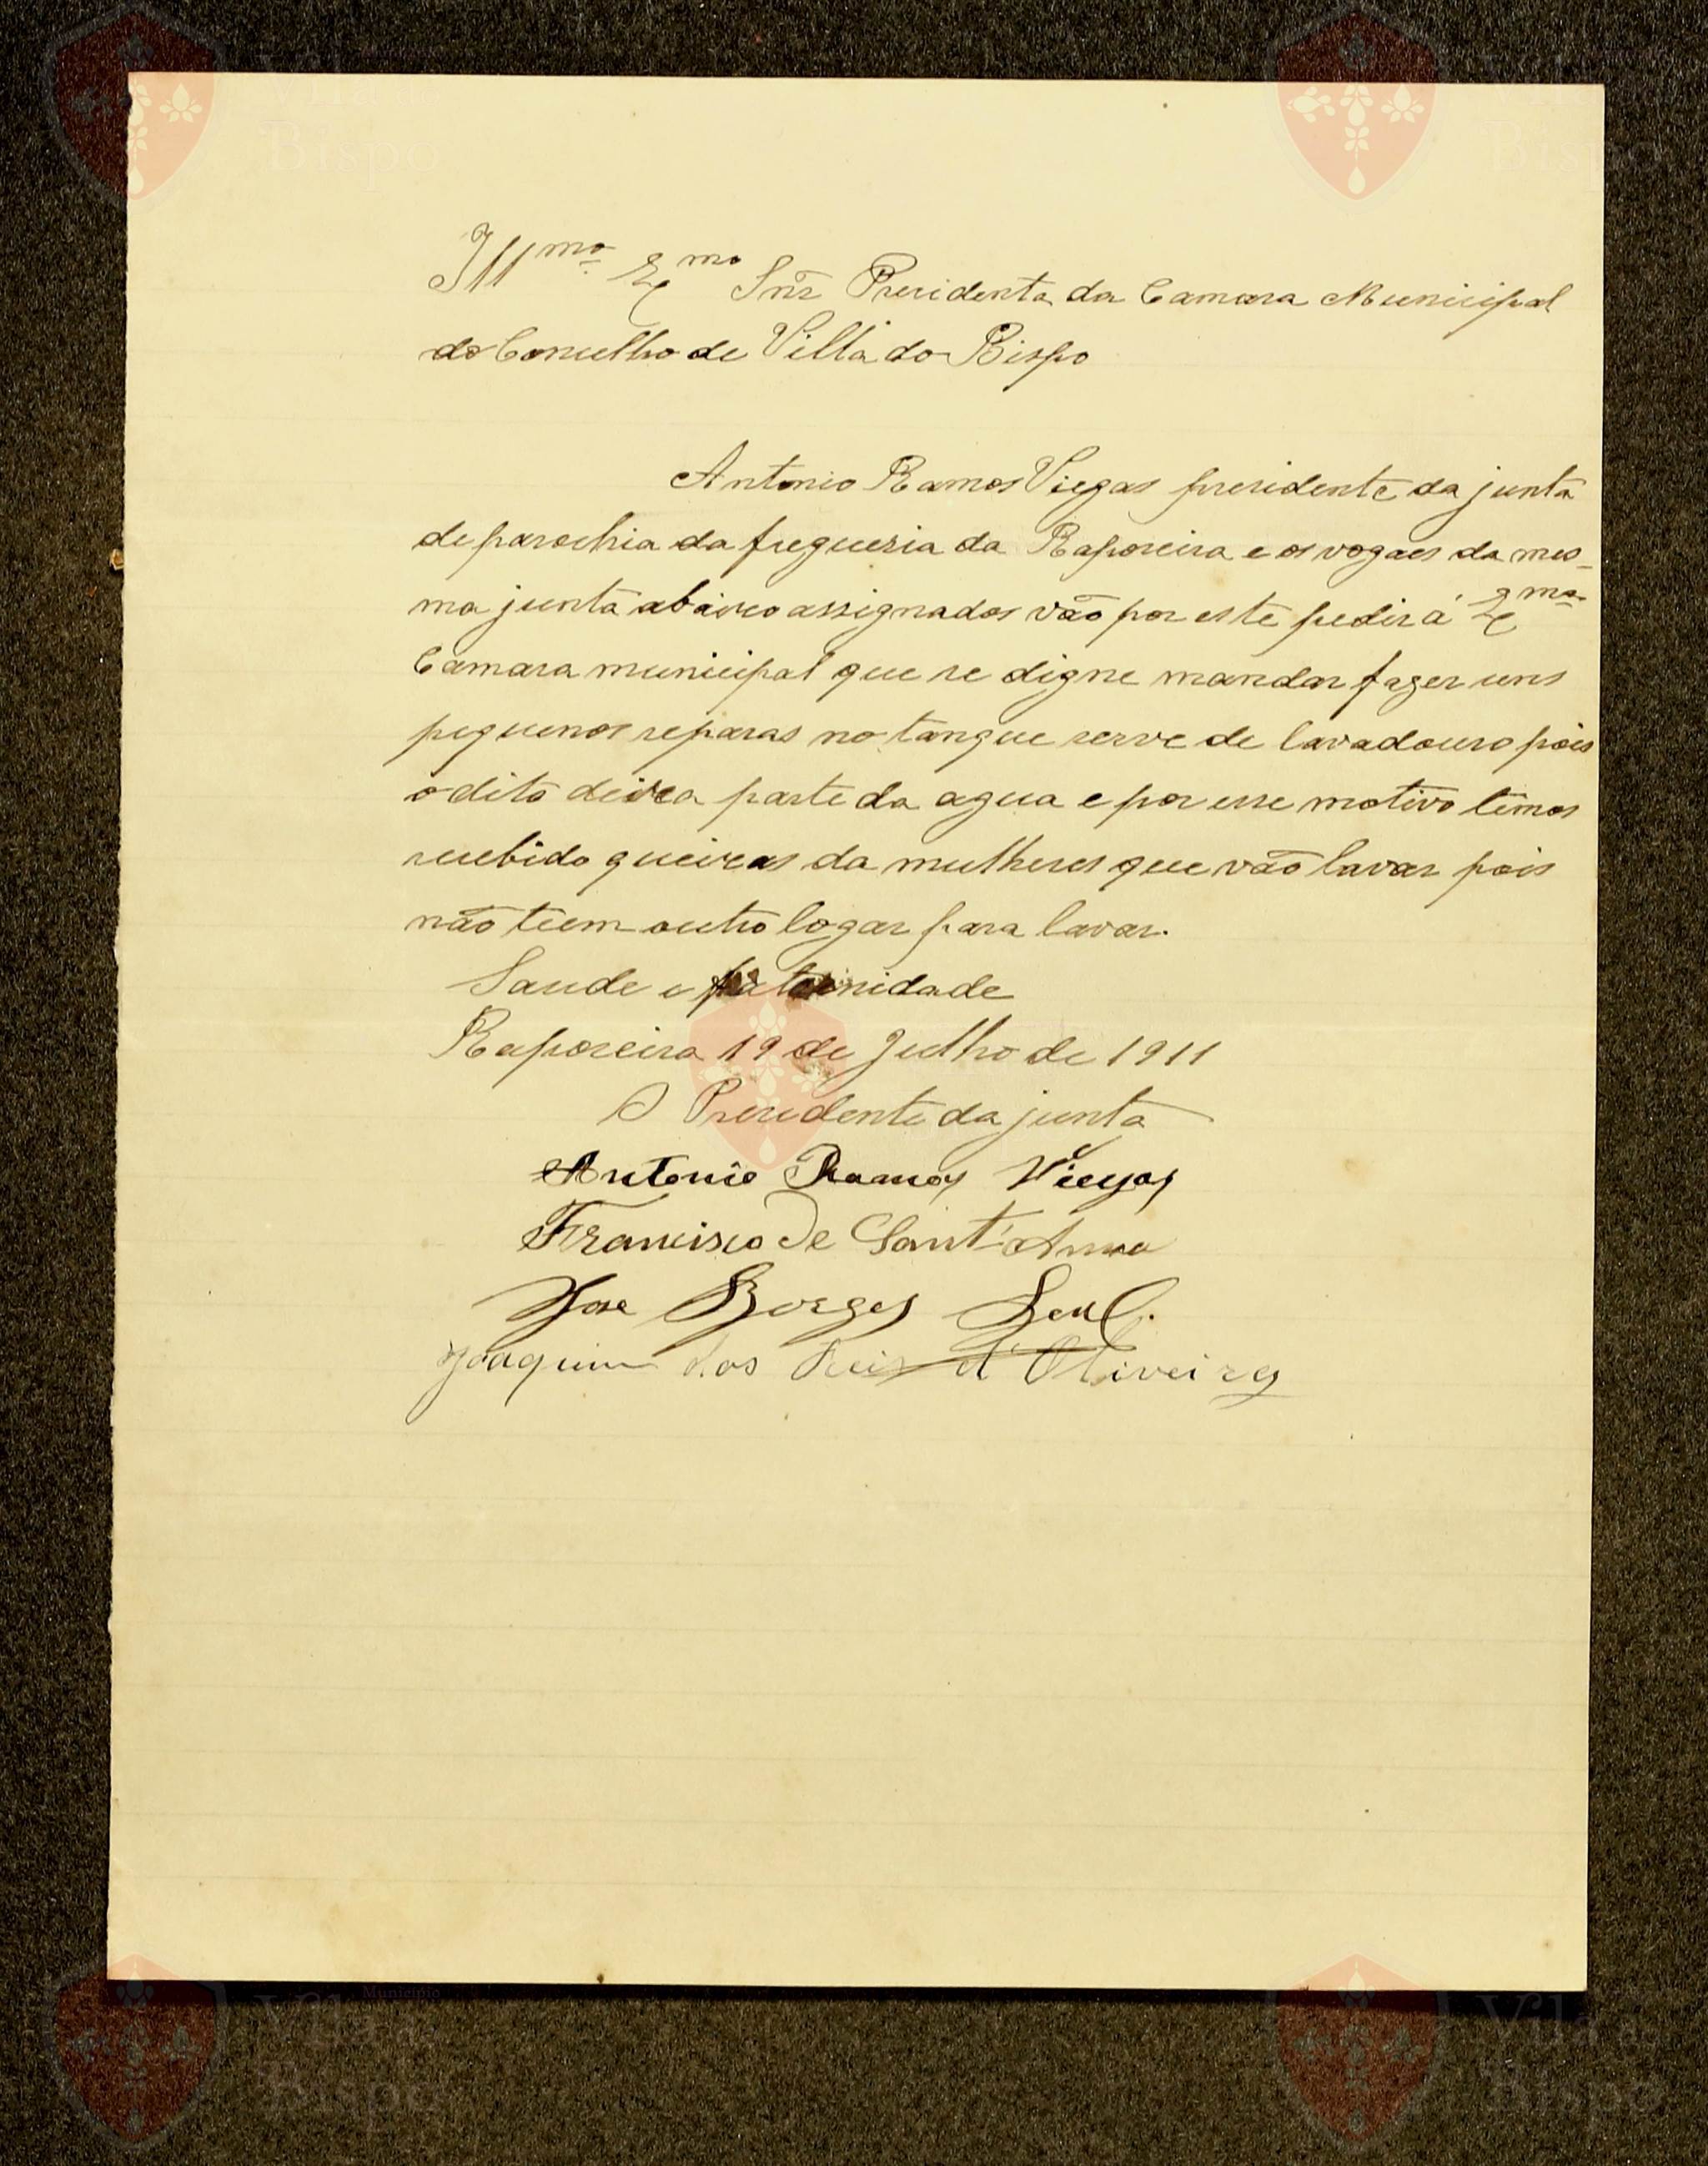 Illmo Exmo Snr Presidente da Camara Municipal
do Concelho de Villa do Bispo
Antonio Ramos Viegas presidente da junta
de parochia da freguesia da Raposeira e os vogaes da mes-
ma junta abaixo assignados vão por este pedir á Exma
Camara municipal que se digne mandar fazer uns
pequenos reparas no tanque serve de lavadouro pois
o dito deixa parte da agua e por esse motivo têmos
recebido queixas da mulheres que vão lavar pois
não teem outro logar para lavar.
Saude e fraternidade
Raposeira 19 de Julho de 1911
O Presidente da junta
Antonio Ramos Viegas
Francisco de Sant'Anna
José Borges Leal.
Joaquim dos Reis d'Oliveira
Bispo
Município
Vila
Bispo
Vila
Bispo